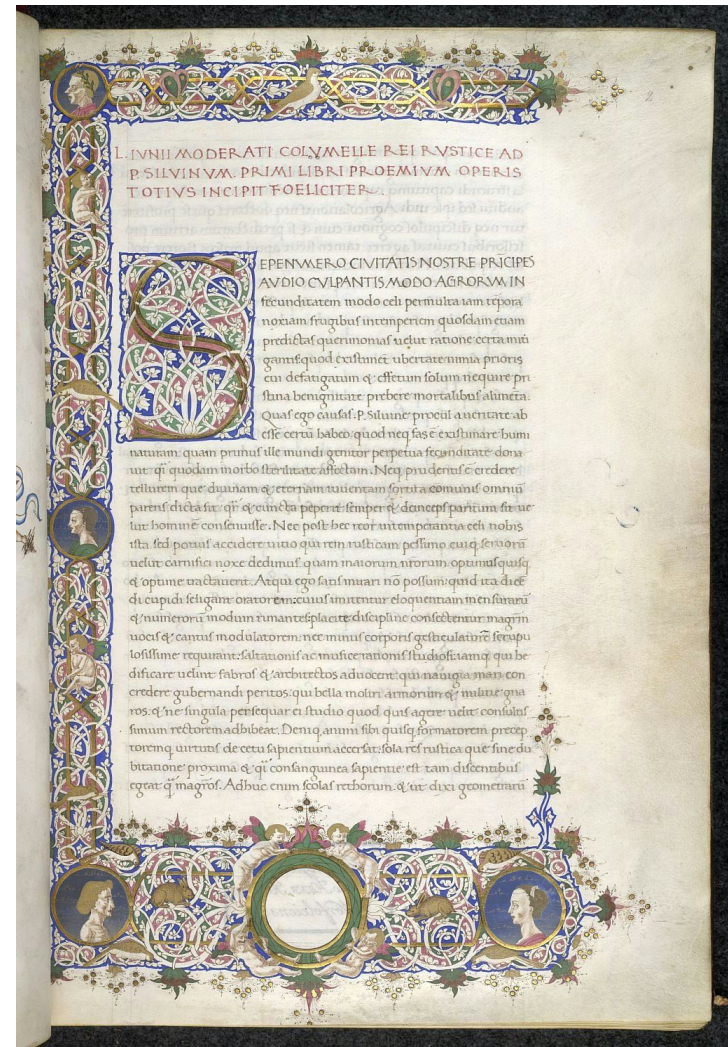 2
L. IVNII MODERATI COLVMELLE REI RVSTICE AD
P. SILVINVM. PRIMI LIBRI PROEMIVM OPERIS
TOTIVS INCIPIT FOELICITER.
SEPENVMERO CIVITATIS NOSTRE PRĪCIPES
AVDIO CVLPANTIS MODO AGRORVM IN
fecunditatem modo celi per multa iam tēpora
noxiam frugibus intemperiem quosdam etiam
predictas querimonias uelut ratione certa miti
gantis quod existiment ubertate nimia prioris
eui defatigatum & effetum solum nequire pri
stina benignitate prebere mortalibus alimēta.
Quas ego causas .P. Siluine procul a ueritate ab
esse certū habeo quod neq fas ē existimare humi
naturam quam primus ille mundi genitor perpetua fecunditate dona
uit qī quodam morbo sterilitate affectam. Neq prudentis ē credere
tellurem que diuinam & eternam iuuentam sortita comunis omniū
parens dicta sit qī & cuncta peperit semper & deinceps paritura sit ue
lut hominē consenuisse. Nec post hec reor intemperantia celi nobis
ista sed potius accidere uitio qui rem rusticam pessimo cuiq seruorū
uelut carnifici noxe dedimus quam maiorum nrorum optimus quisq
& optime tractauerit. Atqui ego satis mirari nō possum quid ita dicēdi cupidi seligant oratorem cuius imitentur eloquentiam mensurarū
& numerorū modum rimantes placite discipline consectentur magrm
uocis & cantus modulatorem: nec minus corporis gesticulatorē scrupu
losissime requirant: saltationis ac musice rationis studiosi: iamq qui he
dificare uelint fabros & architectos aduocent: qui nauigia mari con
credere gubernandi peritos: qui bella moliri armorum & militie gna
ros. & ne singula persequar ei studio quod quis agere uelit consultis
simum rectorem adhibeat. Deniq animi sibi quisq formatorem precep
toremq uirtutis de cetu sapientium accersat: sola res rustica que sine du
bitatione proxima & qī consanguinea sapientie est tam discentibus
egeat qī magrōs. Adhuc enim scolas rethorum & ut dixi geometrarū